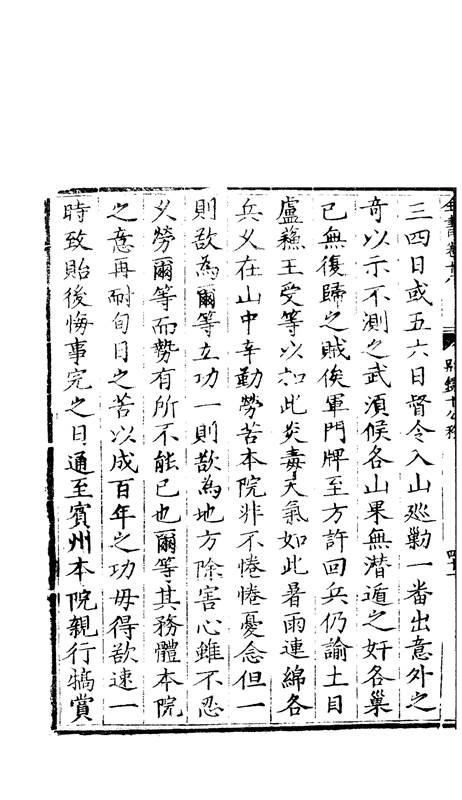 全書卷十八
別錄十公移
四十一
三四日或五六日督令入山巡勦一番出意外之
奇以示不測之武須候各山果無潛遁之奸各巢
已無復歸之賊俟軍門牌至方許回兵仍諭土目
盧蘇王受等以如此炎毒天氣如此暑雨連綿各
兵乂在山中辛勤勞苦本院非不惓惓憂念但一
則欲為爾等立功一則欲為地方除害心雖不忍
乂勞爾等而勢有所不能已也爾等其務體本院
之意再耐旬日之苦以成百年之功毋得欲速一
時致貽後悔事完之日通至賓州本院親行犒賞